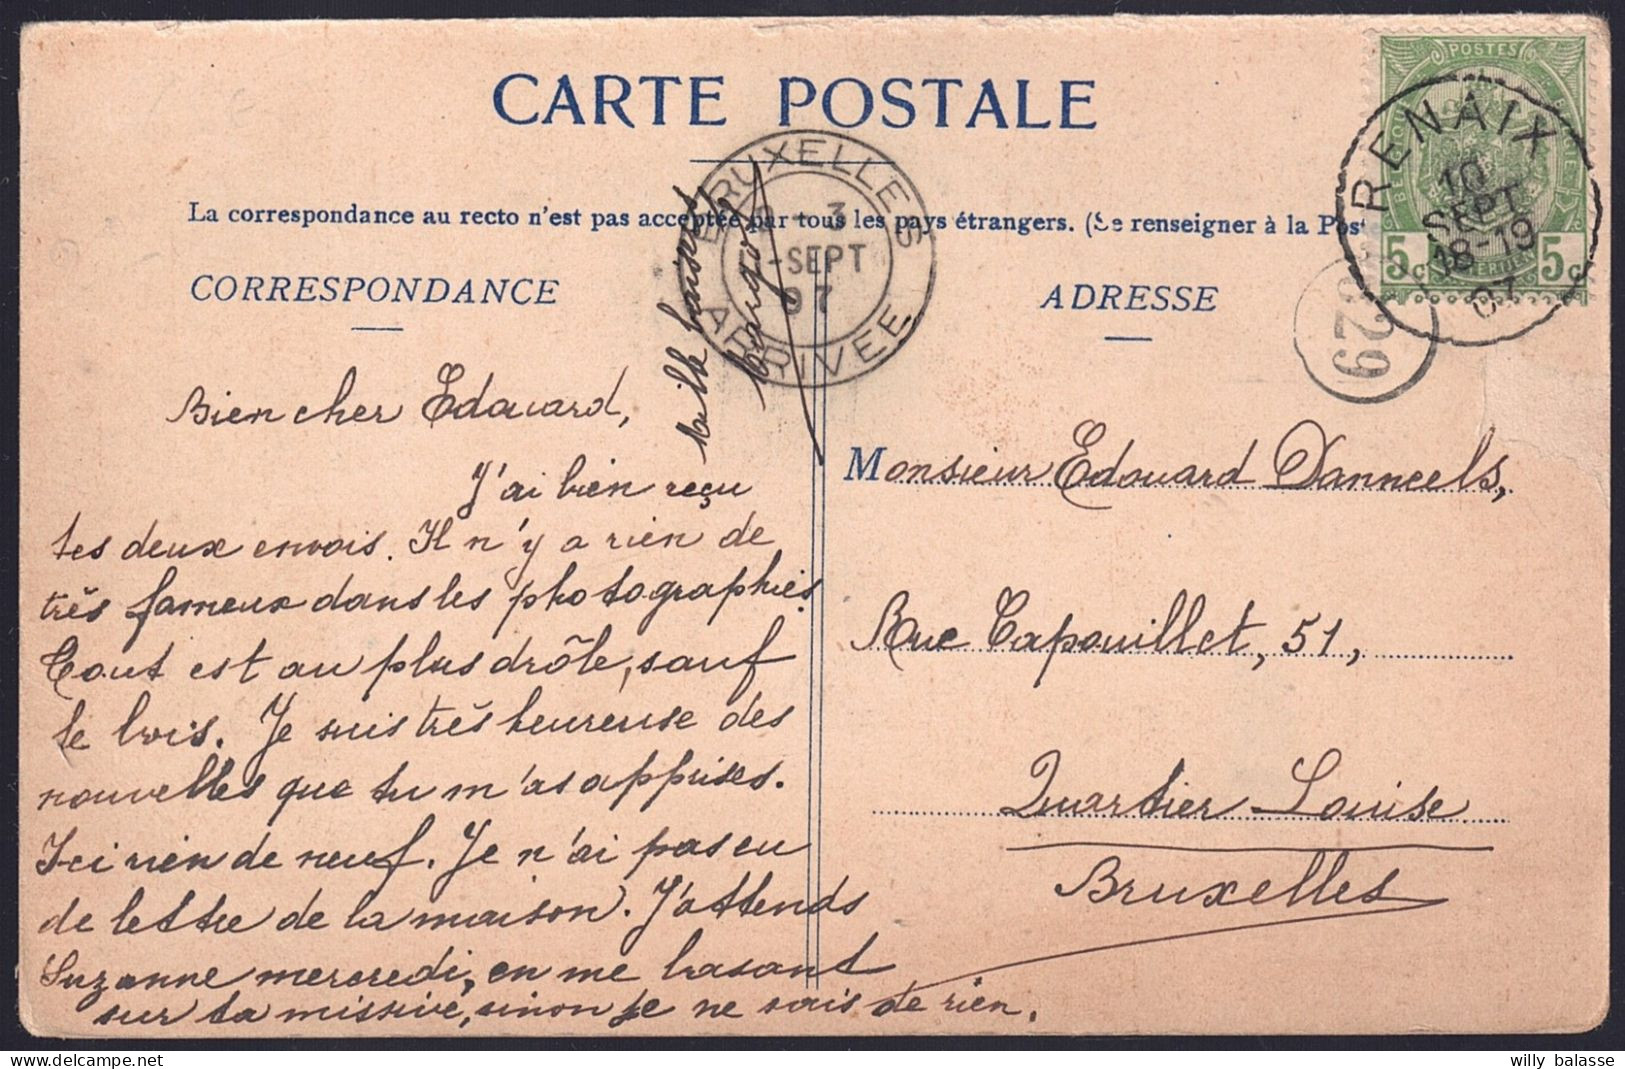 CARTE POSTALE
La correspondance au recto n'est pas acceptée par tous les pays étrangers. (Se renseigner à la Pos
CORRESPONDANCE
ADRESSE
POSTES
5c
5c
RENAIX
10
SEPT
18-19
07
BRUXELLES
- 3
-SEPT
07
ARRIVEE
29
Mille baisers
Margot
Bien cher Edouard,
J'ai bien reçu
tes deux envois. Il n'y a rien de
très fameux dans les photographies.
Tout est au plus drôle, sauf
le bois. Je suis très heureuse des
nouvelles que tu m'as apprises.
Ici rien de neuf. Je n'ai pas eu
de lettre de la maison. J'attends
Suzanne mercredi, en me basant
sur ta missive, sinon je ne sais de rien.
Monsieur Edouard Danneels,
Rue Capouillet, 51,
Quartier Louise
Bruxelles
willy balasse